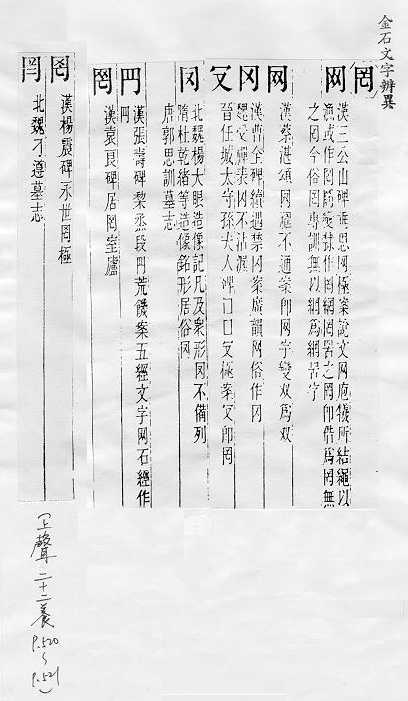 金石文字辨異
罔
网 漢三公山碑番思网極案說文网庖犧所結繩以
漁或作罔隸變作罔網罟之罔即借爲罔無
之罔今俗罔專訓無以網爲網罟字
网 漢蔡湛頌网羅不通案即网字變双爲双
冈 漢曹全碑續遇禁冈案廣韻网俗作冈
魏受禪表冈不沾渥
晉任城太守孫夫人碑囗囗 極案 即罔
冈 北魏楊大眼造像記凡及衆形冈不備列
隋杜乾緒等造像銘形居俗冈
唐郭思訓墓志
漢張壽碑黎烝殷 荒饑案五經文字网石經作
罔 漢袁良碑居罔室廬
罔 漢楊震碑永世罔極
北魏 遵墓志
(上聲二十二養
P.520
~
P.521)